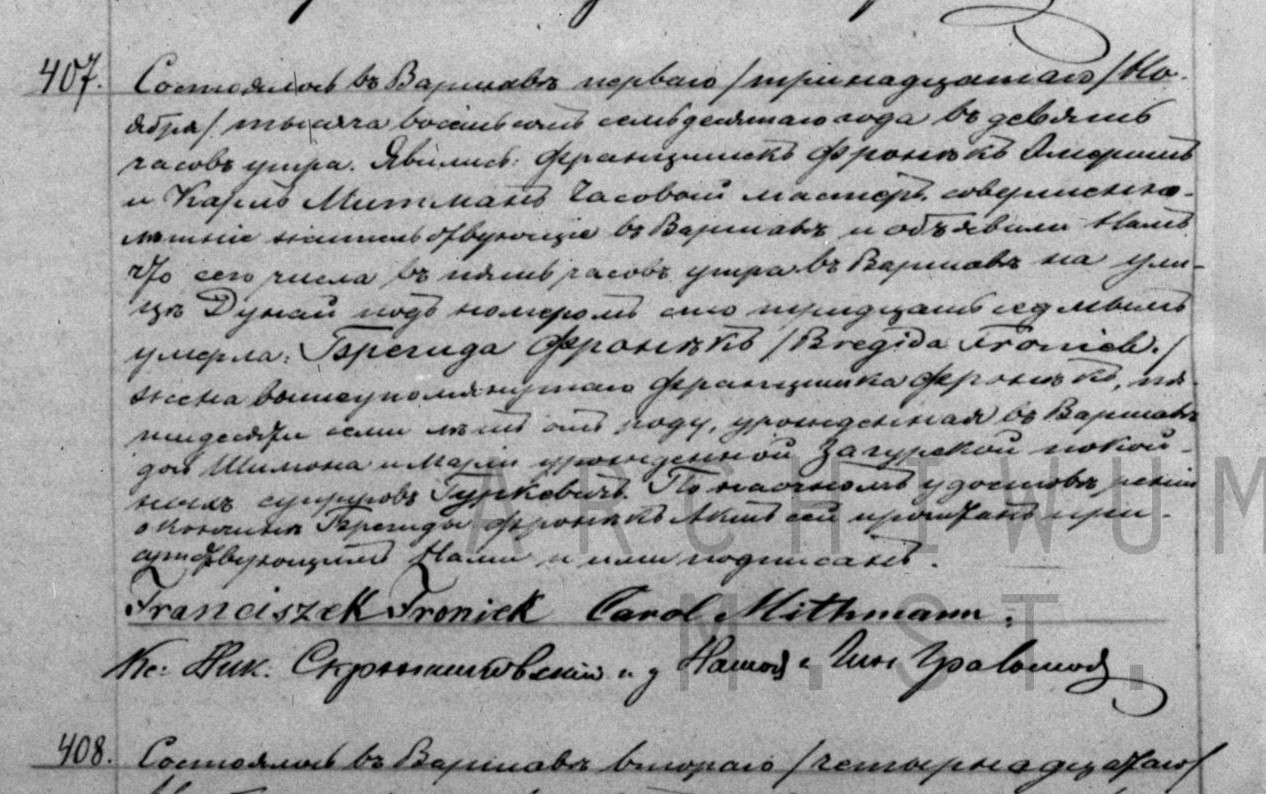 407.
Состоялось въ Варшавѣ перваго /тринадцатаго/ Но-
ября/ тысяча восемьсотъ семьдесятаго года въ девять
часовъ утра. Явились: Францишекъ Фронѣкъ Емеритъ
и Карлъ Митманъ Часовой мастеръ, совершенно-
лѣтніе жительствующіе въ Варшавѣ и объявили Намъ
что сего числа въ пять часовъ утра въ Варшавѣ на ули-
цѣ Дунай подъ номеромъ сто тридцать седмымъ
умерла: Брегида Фронѣкъ /Bregida Froniek./
жена вышеупомянутаго Францишка Фронѣкъ, пя-
тидесяти семи лѣтъ отъ роду, урожденная въ Варшавѣ
дочь Шимона и Маріи урожденной Загурской покой-
ныхъ супруговъ Гуркевичъ. По наочномъ удостовѣреніи
о кончинѣ Брегиды Фронѣкъ Актъ сей прочитанъ при-
сутствующимъ Нами и ими подписанъ.
Franciszek Froniek Carol Mithmann.
Кс: Ник.
408.
Состоялось въ Варшавѣ втораго /четырнадцатаго/
ARCHIWUM
M.ST.